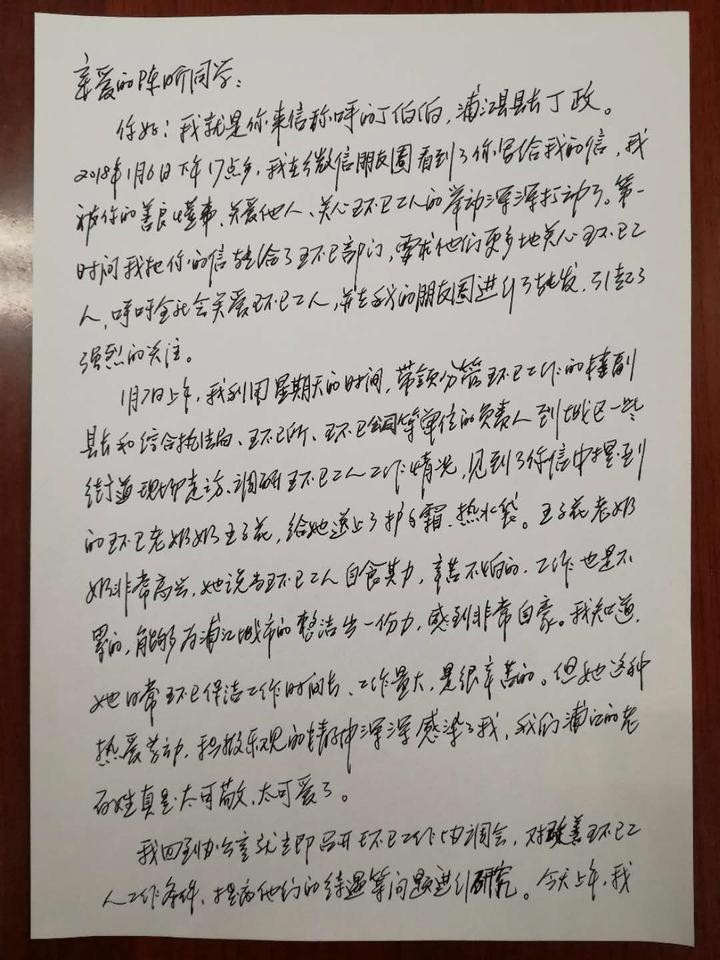 亲爱的陈昕同学：
你好！我就是你来信称呼的丁伯伯，浦江县县长丁政。
2018年1月6日下午17点多，我在微信朋友圈看到了你写给我的信，我
被你的善良懂事、关爱他人、关心环卫工人的举动深深打动了。第一
时间我把你的信转给了环卫部门，要求他们更多地关心环卫工
人，呼吁全社会关爱环卫工人，并在我的朋友圈进行了转发，引起了
强烈的关注。
1月7日上午，我利用星期天的时间，带领分管环卫工作的副
县长和综合执法局、环卫所、环卫公司等单位的负责人到城区一些
街道现场走访、调研环卫工人工作情况，见到了你信中提到
的环卫老奶奶王子花，给她送上了护手霜、热水袋。王子花老奶
奶非常高兴，她说当环卫工人自食其力，辛苦不怕的，工作也是不
累的，能够为浦江城市的整洁出一份力，感到非常自豪。我知道，
她日常环卫保洁工作时间长、工作量大，是很辛苦的。但她这种
热爱劳动，积极乐观的精神深深感染了我，我们浦江的老
百姓真是太可敬、太可爱了。
我回到办公室就立即召开环卫工作协调会，对改善环卫工
人工作条件、提高他们的待遇等问题进行研究。今天上午，我